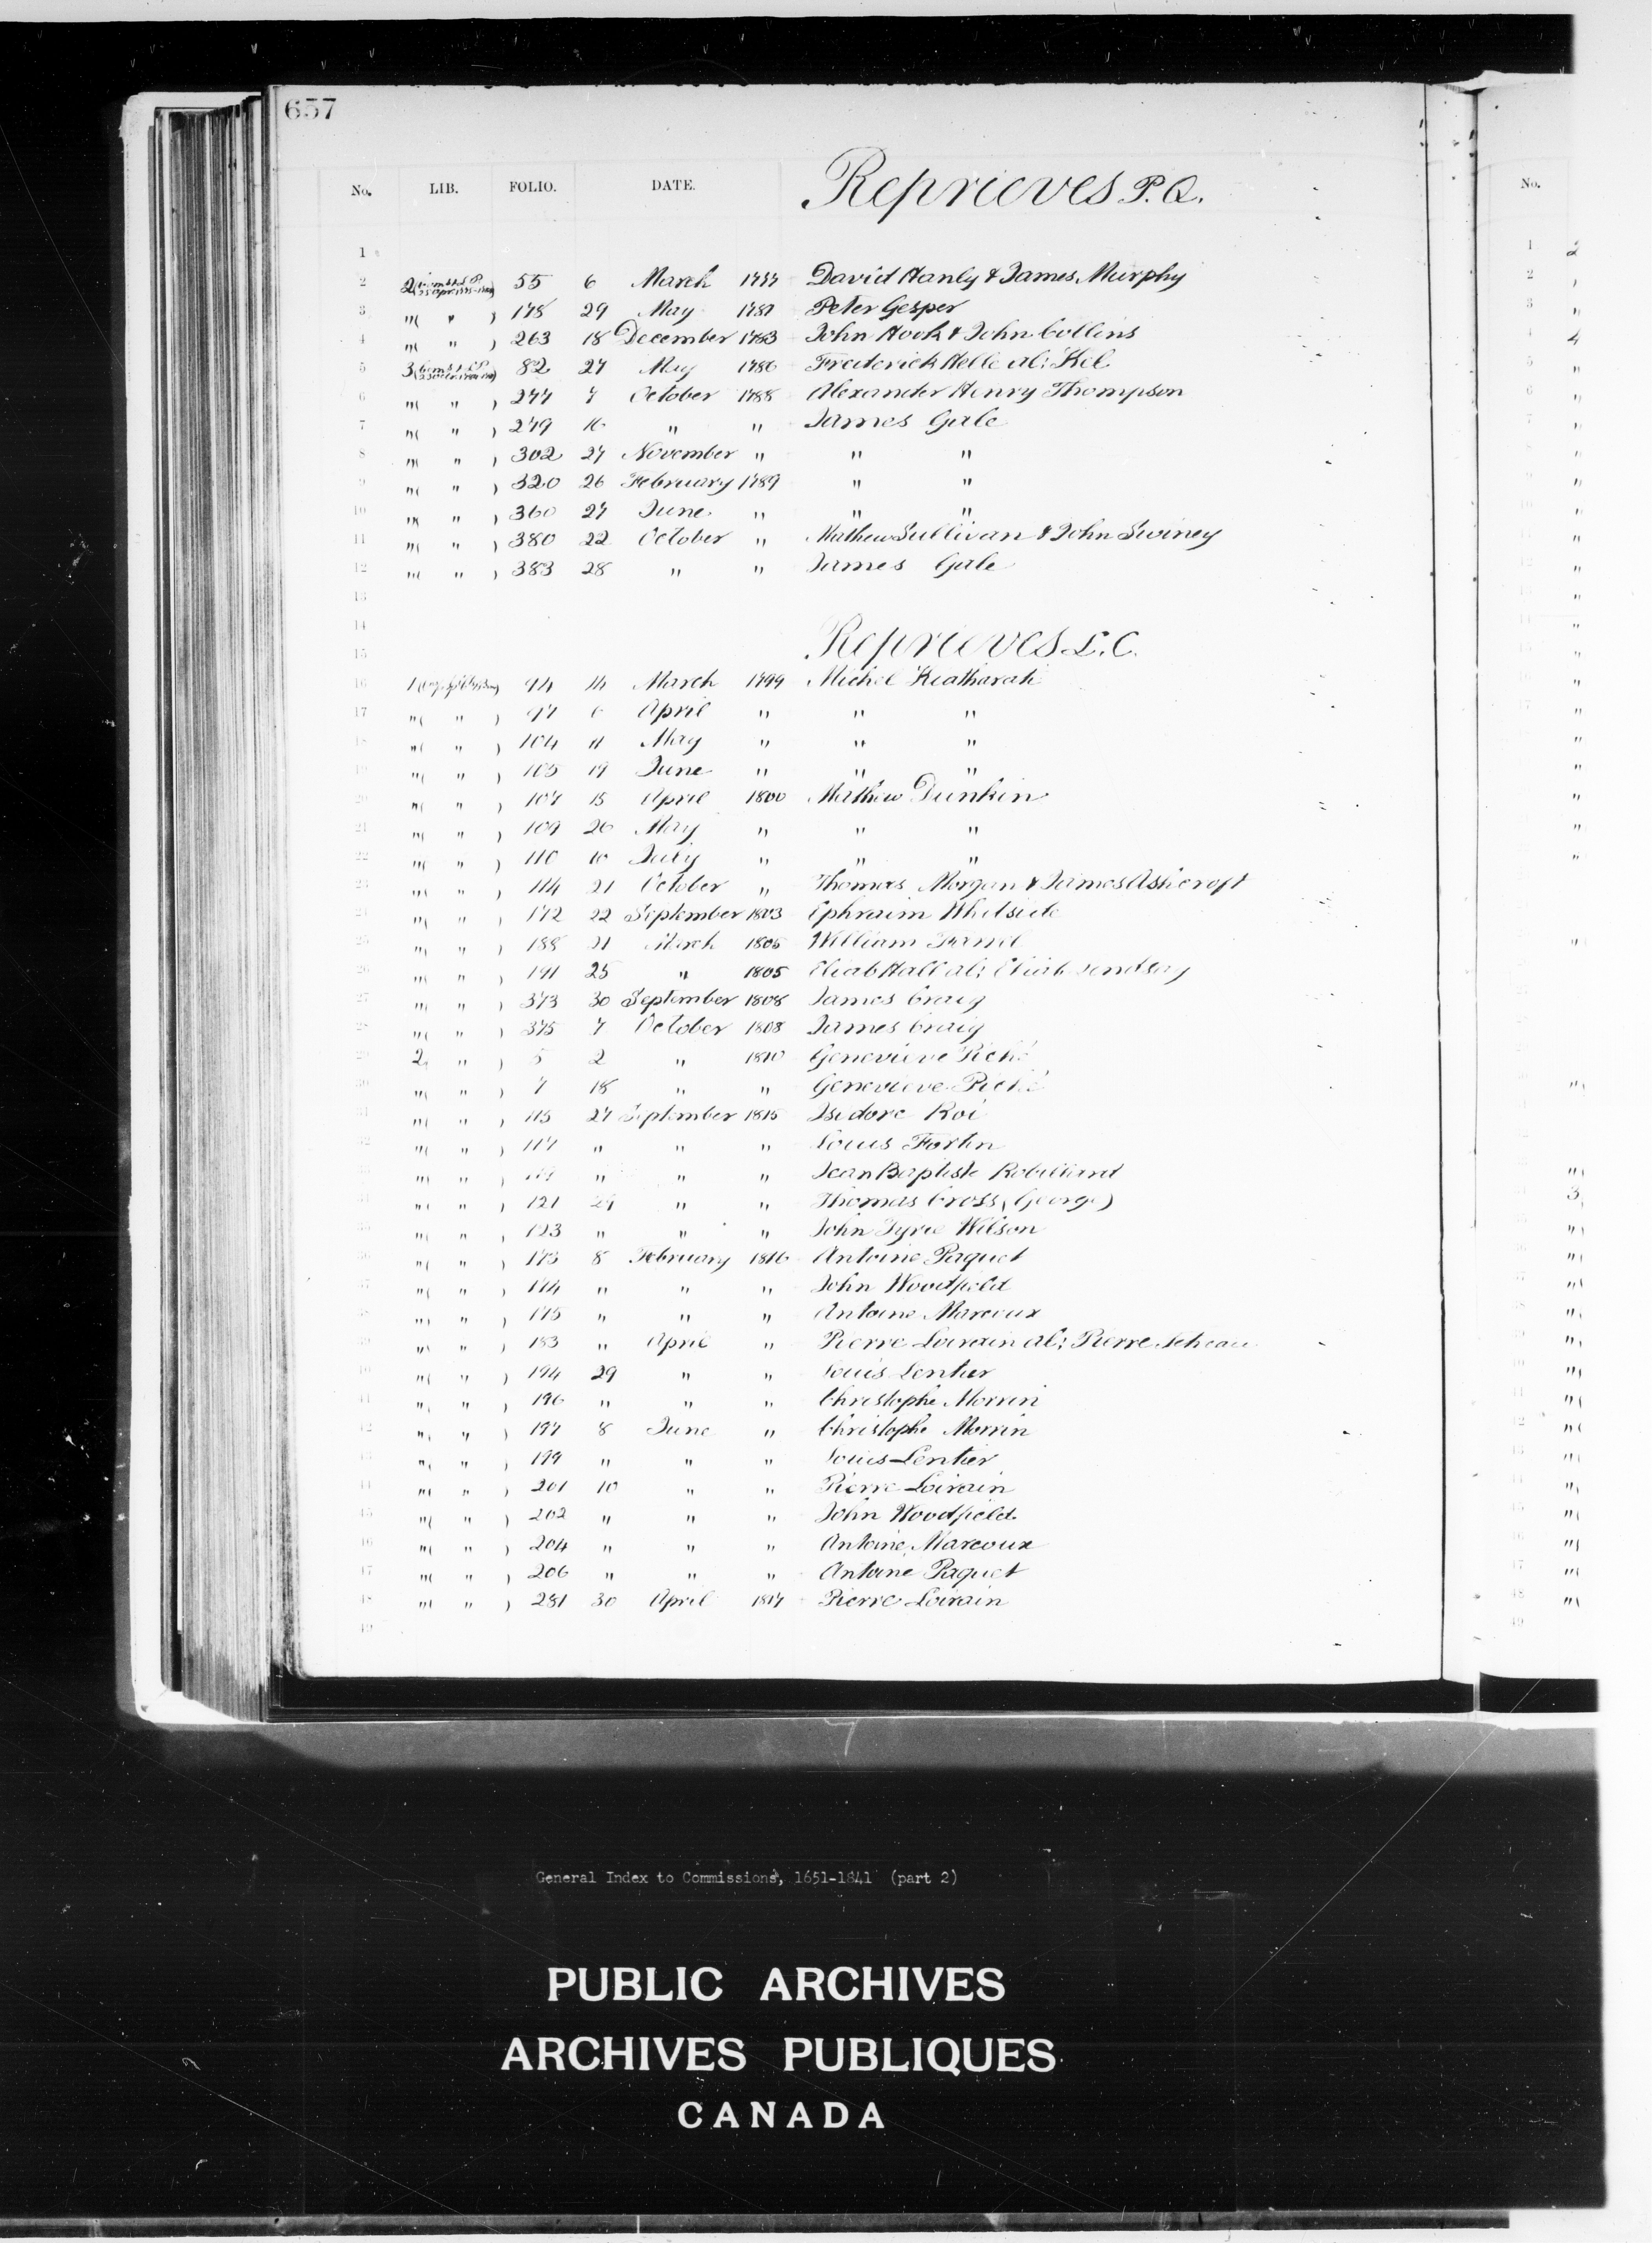 657
No. LIB. FOLIO. DATE. Reprieves P.Q. No.
1
2 2 55 6 March 1777 David Hanly & James Murphy
3 "( " ) 178 29 May 1781 Peter Gesper
4 "( " ) 263 18 December 1783 John Hook & John Collins
5 3 82 27 May 1786 Frederick Helle als Kel
6 "( " ) 277 7 October 1788 Alexander Henry Thompson
7 "( " ) 279 16 " " James Gale
8 "( " ) 302 27 November " " "
9 "( " ) 320 26 February 1789 " "
10 "( " ) 360 27 June " " "
11 "( " ) 380 22 October " Mathew Sullivan & John Swiney
12 "( " ) 383 28 " " James Gale
13
14
15 Reprieves L.C.
16 1 94 14 March 1799 Michel
17 "( " ) 97 6 April " " "
18 "( " ) 104 11 May " " "
19 "( " ) 105 19 June " " "
20 "( " ) 107 15 April 1800 Mathew Dunkin
21 "( " ) 109 26 May " " "
22 "( " ) 110 10 July " " "
23 "( " ) 114 21 October " Thomas Morgan & James Ashcroft
24 "( " ) 172 22 September 1803 Ephraim Whitside
25 "( " ) 188 21 March 1805 William
26 "( " ) 191 25 " 1805 Eliab Hall als Eliab Lindsay
27 "( " ) 373 30 September 1808 James Craig
28 "( " ) 375 7 October 1808 James Craig
29 2 " ) 5 2 " 1810 Genevieve Piché
30 "( " ) 7 18 " " Genevieve Piché
31 "( " ) 115 27 September 1815 Isidore Roi
32 "( " ) 117 " " " Louis Fortin
33 "( " ) 119 " " " Jean Baptiste Robillard
34 "( " ) 121 29 " " Thomas Cross (George)
35 "( " ) 123 " " " John Tyrie Wilson
36 "( " ) 173 8 February 1816 Antoine Paquet
37 "( " ) 174 " " " John Woodfield
38 "( " ) 175 " " " Antoine Marcoux
39 "( " ) 183 " April " Pierre Loirain als Pierre
40 "( " ) 194 29 " " Louis Lentier
41 "( " ) 196 " " " Christophe Morrin
42 "( " ) 197 8 June " Christophe Morrin
43 "( " ) 199 " " " Louis Lentier
44 "( " ) 201 10 " " Pierre Loirain
45 "( " ) 202 " " " John Woodfield
46 "( " ) 204 " " " Antoine Marcoux
47 "( " ) 206 " " " Antoine Paquet
48 "( " ) 281 30 April 1817 Pierre Loirain
49
General Index to Commissions, 1651-1841 (part 2)
PUBLIC ARCHIVES
ARCHIVES PUBLIQUES
CANADA